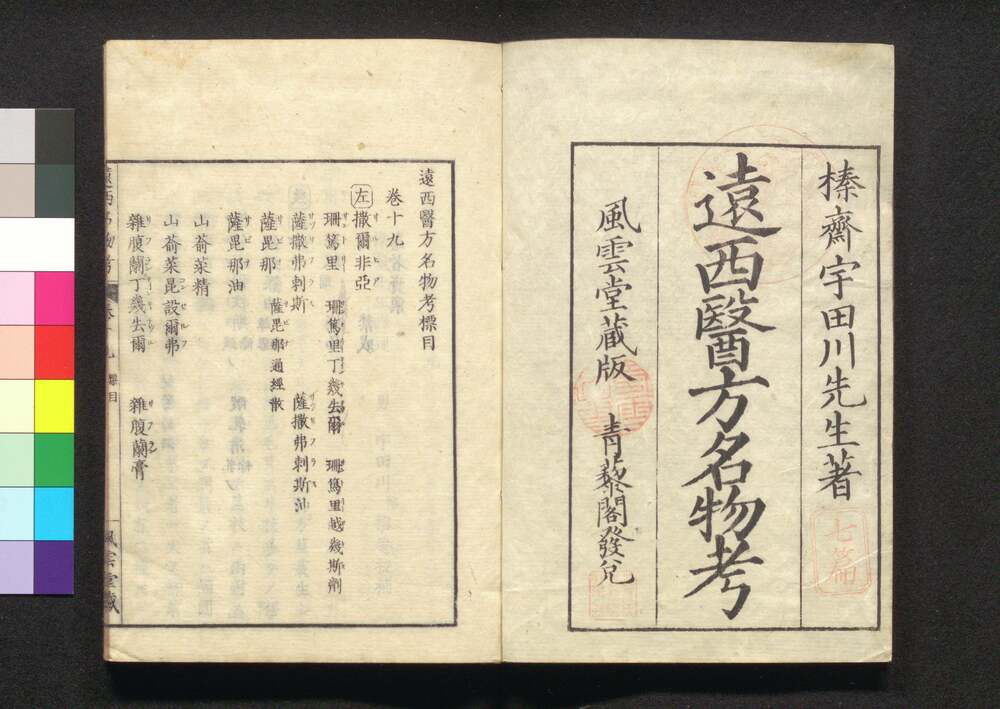 榛齋宇田川先生著
七篇
遠西醫方名物考
風雲堂蔵版　青藜閣發兌
遠西醫方名物考標目
巻十九
左 撒爾非亞
珊篤里　珊篤里丁幾去爾　珊篤里越幾斯劑
薩撒弗剌斯　薩撒弗剌斯油
薩毘那　薩毘那通經散
薩毘那油
山萮菜精
山萮菜昆設爾弗
雜腹蘭丁幾去爾　雜腹蘭膏